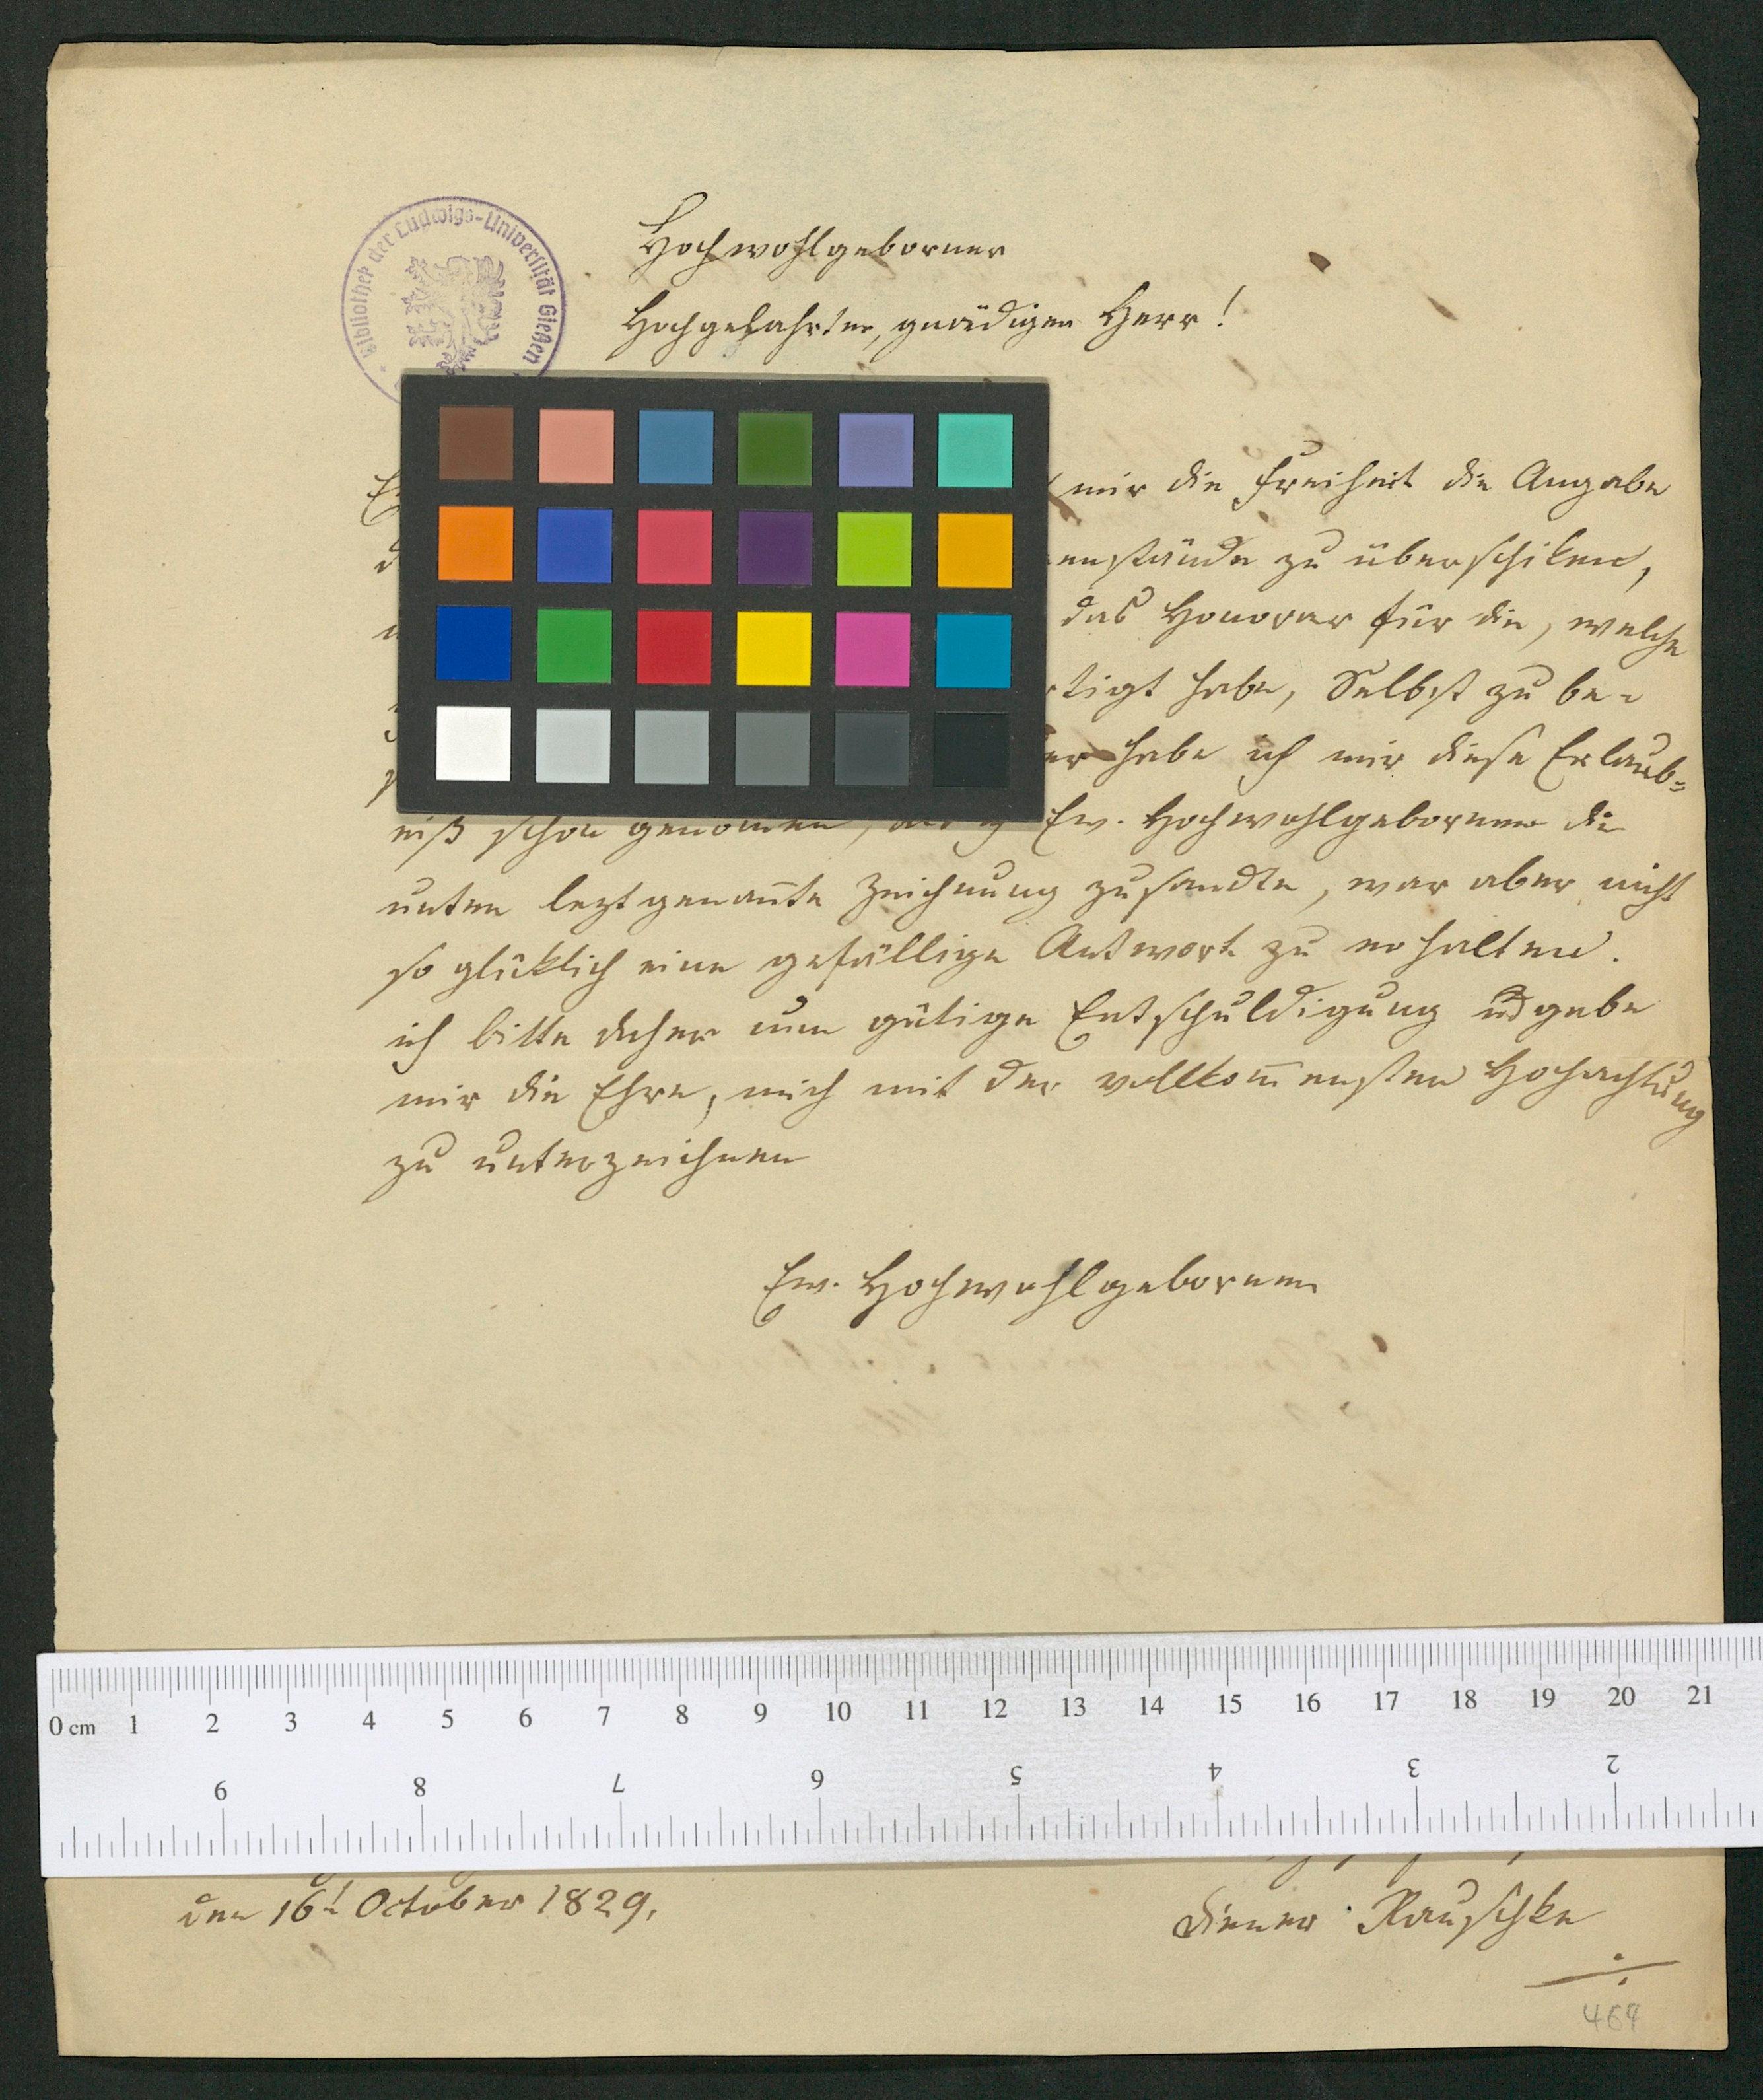 Bibliothek der Ludwigs-Universität Gießen
Hochwohlgeborner
Hochgelahrter, gnädiger Herr!
mir die Freiheit die Angabe
enstände zu überschiken,
das Honorar für die, welche
tigt habe, Selbst zu be-
er habe ich mir diese Erlaub=
niß schon genomen, Ew. Hochwohlgebornen die
unten leztgenañte Zeichnung zusandte, war aber nicht
so glüklich eine gefällige Antwort zu erhalten.
ich bitte daher um gütige Entschuldigung ud gebe
mir die Ehre, mich mit der vollkom̄ensten Hochachtung
zu unterzeichnen
Ew. Hochwohlgebornen
0 cm 1 2 3 4 5 6 7 8 9 10 11 12 13 14 15 16 17 18 19 20 21
9 8 7 6 5 4 3 2
den 16t October 1829.
diener Rauschke
464